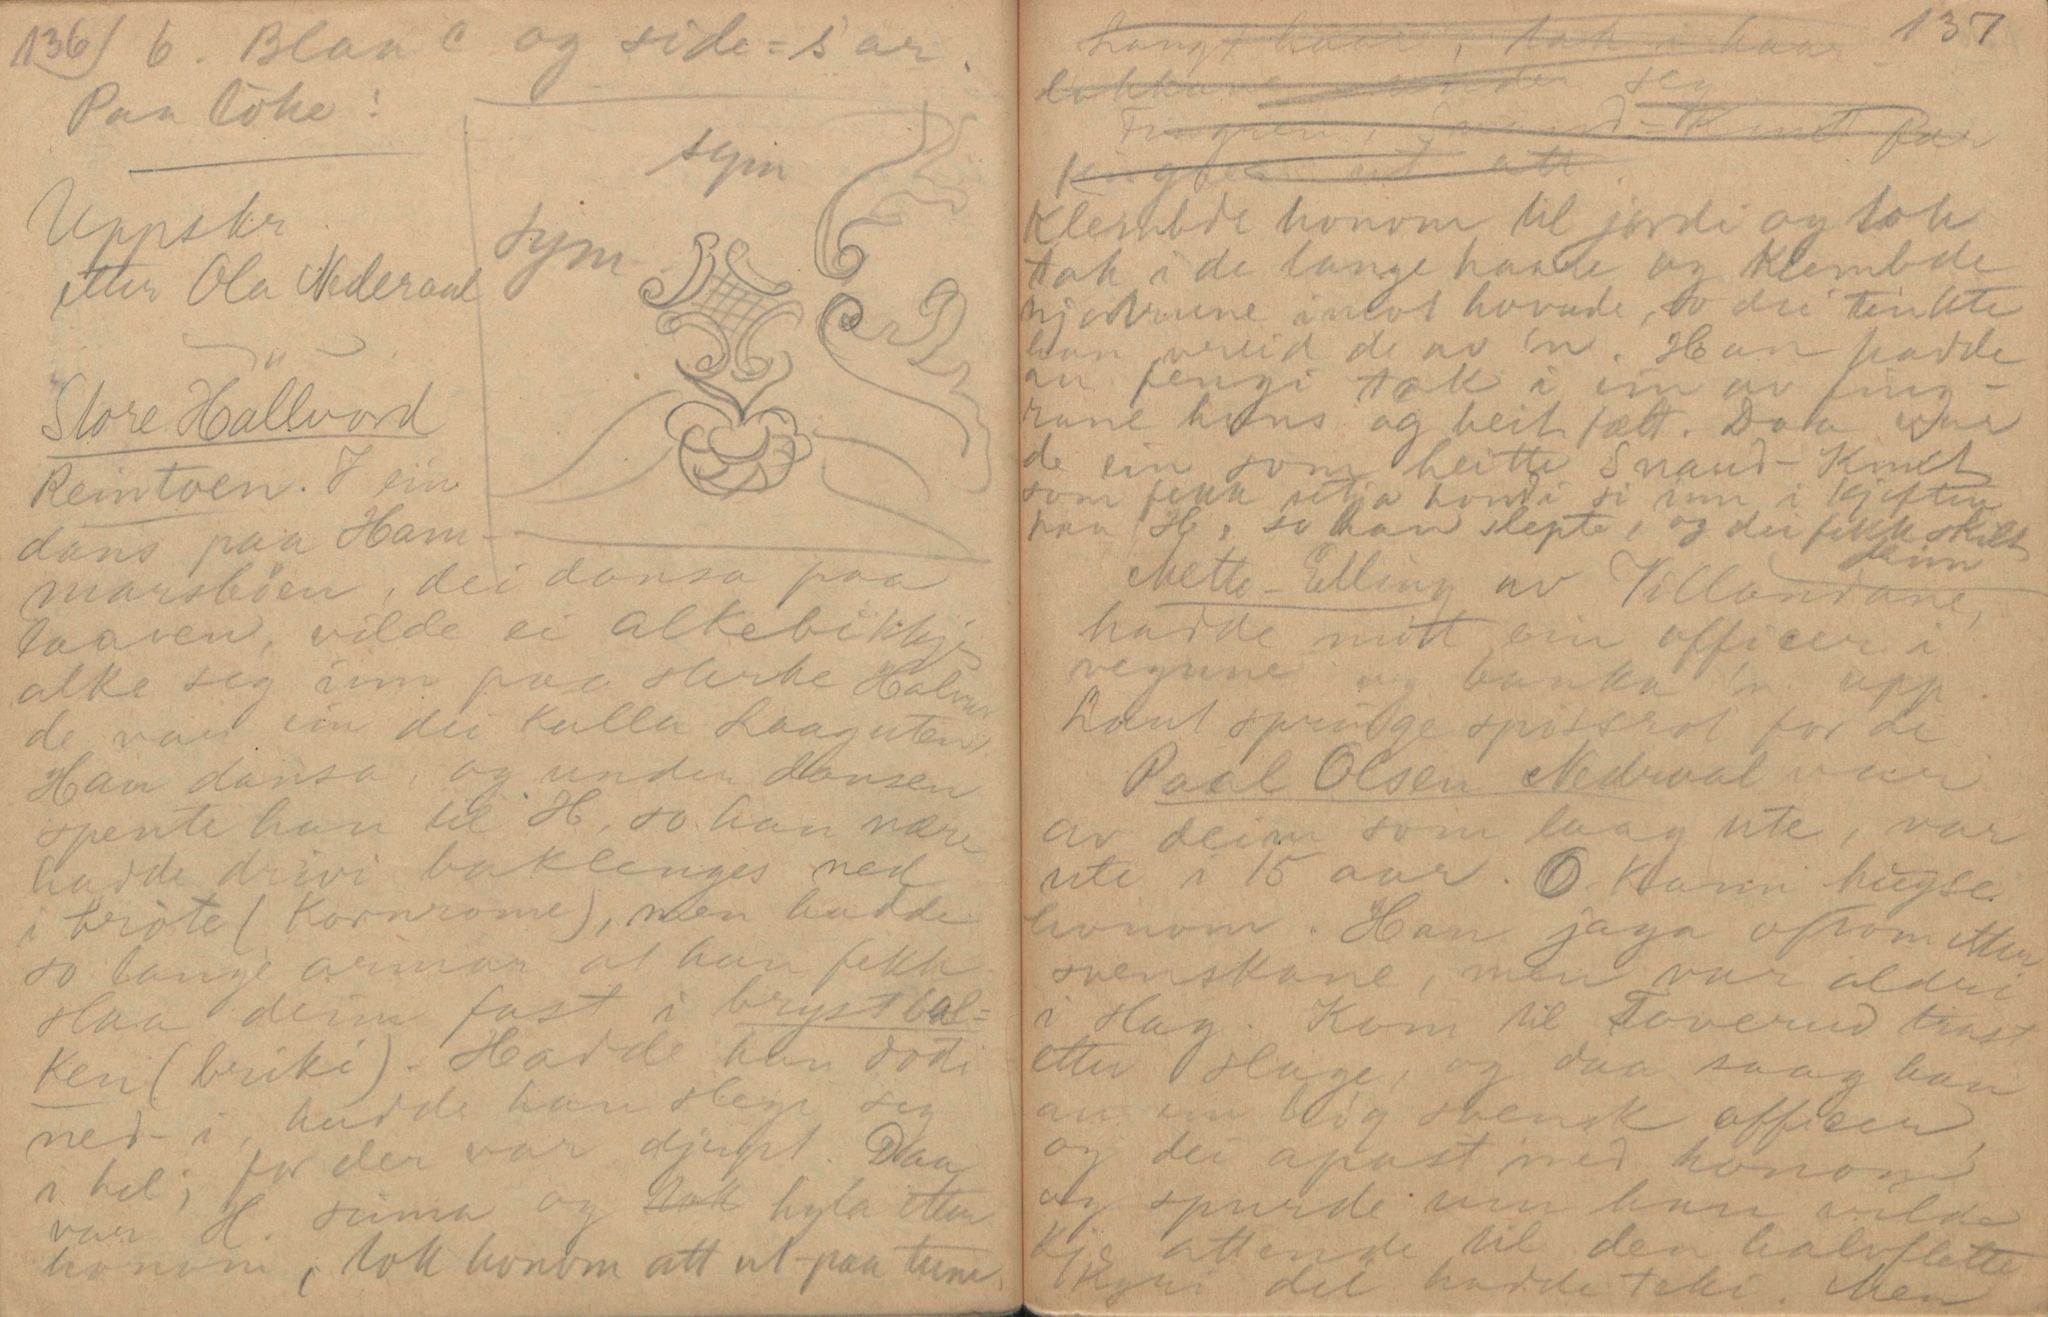 136) 6. Blaa C og side=s'ar.
Paa loke:
sym
sym
Uppskr.
etter Ola Nederaal
Store Hallvord
Reintoen. I ein
dans paa Ham-
marsböen, dei dansa paa
laaven, vilde ei alkebikkje
alke seg inn paa sterke Halvor
de var ein dei kalla Laaguten,
Han dansa, og under dansen
spente han til H, so han nære
hadde drivi baklenges ned
i bröte (kornrome), men hadde
so lange armar at han fekk
slaa deim fast i brystbal=
ken (briki). Hadde han dotti
ned-i, hadde han slege seg
i hel; for der var djupt. Daa
var H. sinna og tok hyla etter
honom, tok honom att ut-paa tune.
137
Langt haar, tok i haar
lokkane seg
Fingren, Svaud-Knut for
fingren ut att.
Klembde honom til jordi og tok
tak i de lange haare og klembde
njovune imot hovude, so dei tenkte
han vreid de av 'n. Han hadde
au fengi tak i ein av fing-
rane hans og beit fælt. Daa var
de ein som heitte Svaud-Knut
som fekk setja hondi si inn i kjeften
paa H, so han slepte, og dei fekk skilt
deim
Mette-Elling av Villandane,
hadde mött ein officer i
vegjine og banka 'n upp.
Laut springe spissrot for de
Paal Olsen Nedraal var
av deim som laag ute, var
ute i 15 aar. O. kann hugse
honom. Han jaga ofrom etter
svenskane, men var aldri
i slag. Kom til Toverud trast
etter slage, og daa saag han
au ein lig svensk officer,
og dei apast med honom
og spurde um han vilde
kje attende til den halvflette
kyri dei hadde teki. Men